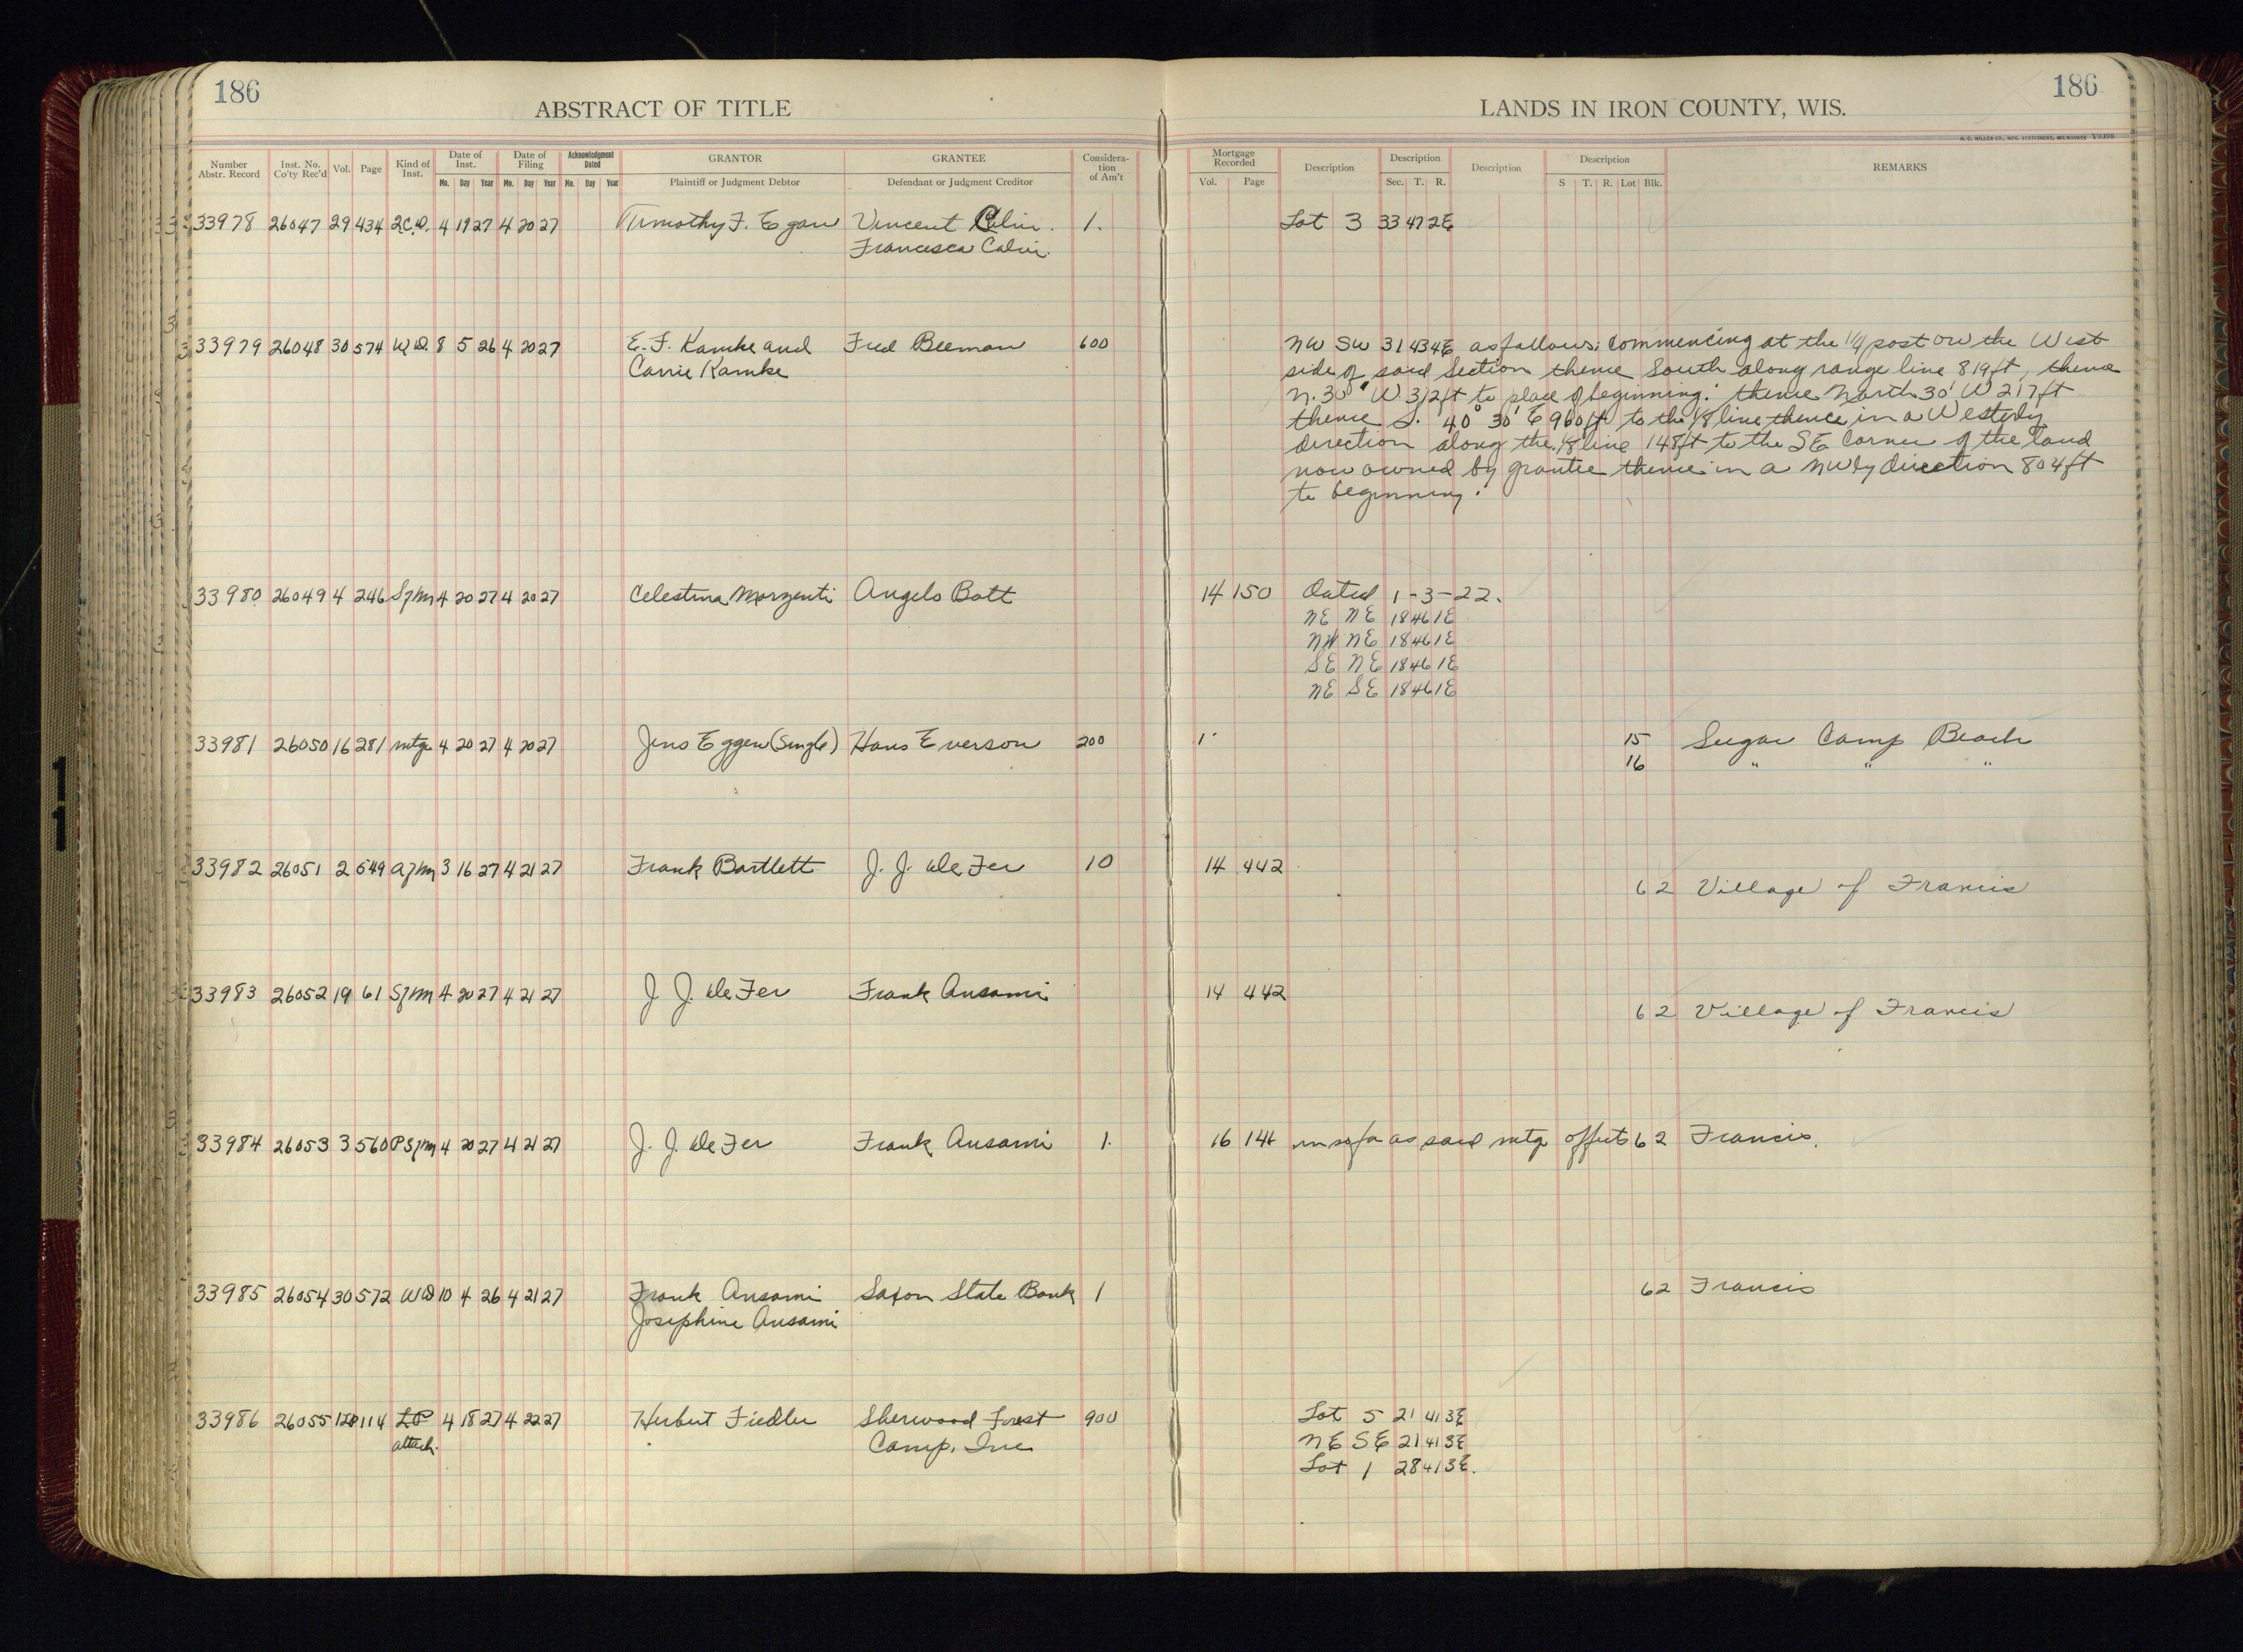 186
ABSTRACT OF TITLE
LANDS IN IRON COUNTY, WIS.
186
H. C. MILLER CO., MFG. STATIONERS, MILWAUKEE V9398
Number Abstr. Record
Inst. No. Co'ty Rec'd
Vol.
Page
Kind of Inst.
Date of Inst.
Mo. Day Year
Date of Filing
Mo. Day Year
Acknowledgment Dated
Mo. Day Year
GRANTOR
Plaintiff or Judgment Debtor
GRANTEE
Defendant or Judgment Creditor
Considera-tion of Am't
Mortgage Recorded
Vol. Page
Description
Description
Sec. T. R.
Description
Description
S T. R. Lot Blk.
REMARKS
33978 26047 29 434 2C.D. 4 19 27 4 20 27 Timothy F. Egan Vincent Calvi. 1. Lot 3 33 47 2E
Francesca Calvi.
33979 26048 30 574 W.D. 8 5 26 4 20 27 E. F. Kamke and Fred Beeman 600 NW SW 31 43 4E as follows: Commencing at the 1/4 post on the West
Carrie Kamke side of said Section thence South along range line 819 ft, thence
N. 30° W 312 ft to place of beginning: thence North 30' W 217 ft
thence S. 40° 30' E 960 ft to the 1/8 line thence in a Westerly
direction along the 1/8 line 148 ft to the SE Corner of the land
now owned by grantee thence in a NWly direction 804 ft
to beginning.
33980 26049 4 246 Sfm 4 20 27 4 20 27 Celestina Marzenti Angelo Bott 14 150 Dated 1-3-22.
NE NE 18 46 1E
NW NE 18 46 1E
SE NE 18 46 1E
NE SE 18 46 1E
33981 26050 16 281 mtge 4 20 27 4 20 27 Jens Eggen (Single) Hans Everson 200 1 15 Sugar Camp Beach
16 " " "
33982 26051 2 549 afm 3 16 27 4 21 27 Frank Bartlett J. J. De Fer 10 14 442
62 Village of Francis
33983 26052 19 61 Sfm 4 20 27 4 21 27 J. J. De Fer Frank Ansami 14 442
62 Village of Francis
33984 26053 3 560 PSfm 4 20 27 4 21 27 J. J. De Fer Frank Ansami 1. 16 141 insofar as said mtge effects 62 Francis.
33985 26054 30 572 WD 10 4 26 4 21 27 Frank Ansami Saxon State Bank 1 62 Francis
Josephine Ansami
33986 26055 114 LP 4 18 27 4 22 27 Herbert Fiedler Sherwood Forest 900 Lot 5 21 41 3E
attach. Camp, Inc. NE SE 21 41 3E
Lot 1 28 41 3E.